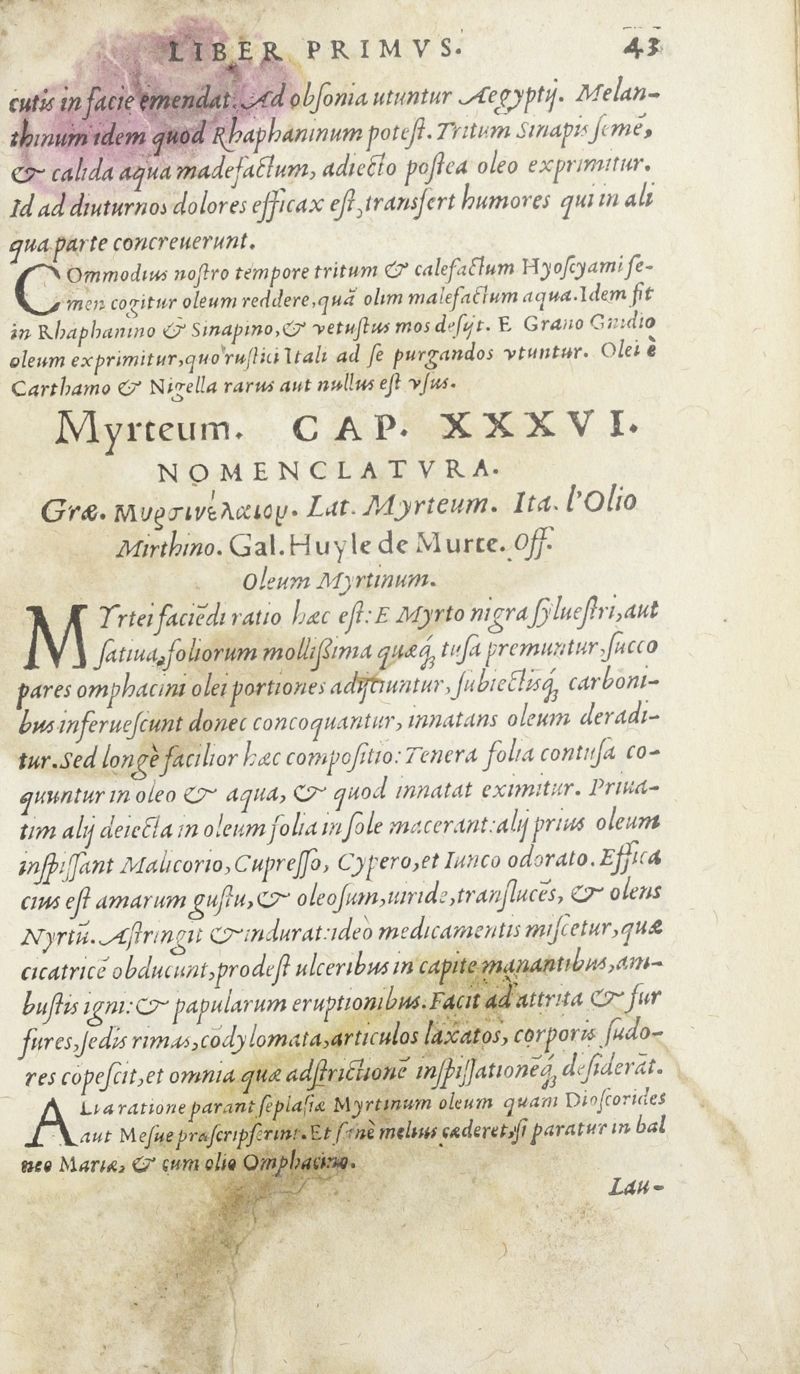 LIBER PRIMVS. 43
cutis in facie emendat. Ad obſonia utuntur Aegyptij. Melan-
thinum idem quod Rhaphaninum poteſt. Tritum Sinapis ſemē,
& calida aqua madefactum, adiecto poſtea oleo exprimitur.
Id ad diuturnos dolores efficax eſt, transfert humores qui in ali
qua parte concreuerunt.
COmmodius noſtro tempore tritum & calefactum Hyoſcyami ſe-
men cogitur oleum reddere, quā olim malefactum aqua. Idem fit
in Rhaphanino & Sinapino, & vetuſtus mos deſijt. E Grano Gnidio
oleum exprimitur, quo ruſtici Itali ad ſe purgandos vtuntur. Olei è
Carthamo & Nigella rarus aut nullus eſt vſus.
Myrteum. CAP. XXXVI.
NOMENCLATVRA.
Græ. Μυρσινέλαιον. Lat. Myrteum. Ita. l'Olio
Mirthino. Gal. Huyle de Murte. Off.
Oleum Myrtinum.
MYrtei faciēdi ratio hæc eſt: E Myrto nigra ſylueſtri, aut
ſatiua, foliorum molliſſima quæq́; tuſa premuntur, ſucco
pares omphacini olei portiones adijciuntur, ſubiectisq́; carboni-
bus inferueſcunt donec concoquantur, innatans oleum deradi-
tur. Sed longè facilior hæc compoſitio: Tenera folia contuſa co-
quuntur in oleo & aqua, & quod innatat eximitur. Priua-
tim alij deiecta in oleum folia in ſole macerant: alij prius oleum
inſpiſſant Malicorio, Cupreſſo, Cypero, et Iunco odorato. Effica
cius eſt amarum guſtu, & oleoſum, uiride, transſlucēs, & olens
Nyrtū. Aſtringit & indurat: ideò medicamentis miſcetur, quæ
cicatricē obducunt, prodeſt ulceribus in capite manantibus, am-
buſtis igni: & papularum eruptionibus. Facit ad attrita & fur
fures, ſedis rimas, cōdylomata, articulos laxatos, corporis ſudo-
res copeſcit, et omnia quæ adſtrictionē inſpiſſationēq́; deſiderāt.
ALia ratione parant ſeplaſiæ Myrtinum oleum quam Dioſcorides
aut Meſue præſcripſerint. Et ſanè melius cæderet, ſi paratur in bal
neo Mariæ, & cum olio Omphacino.
Lau-